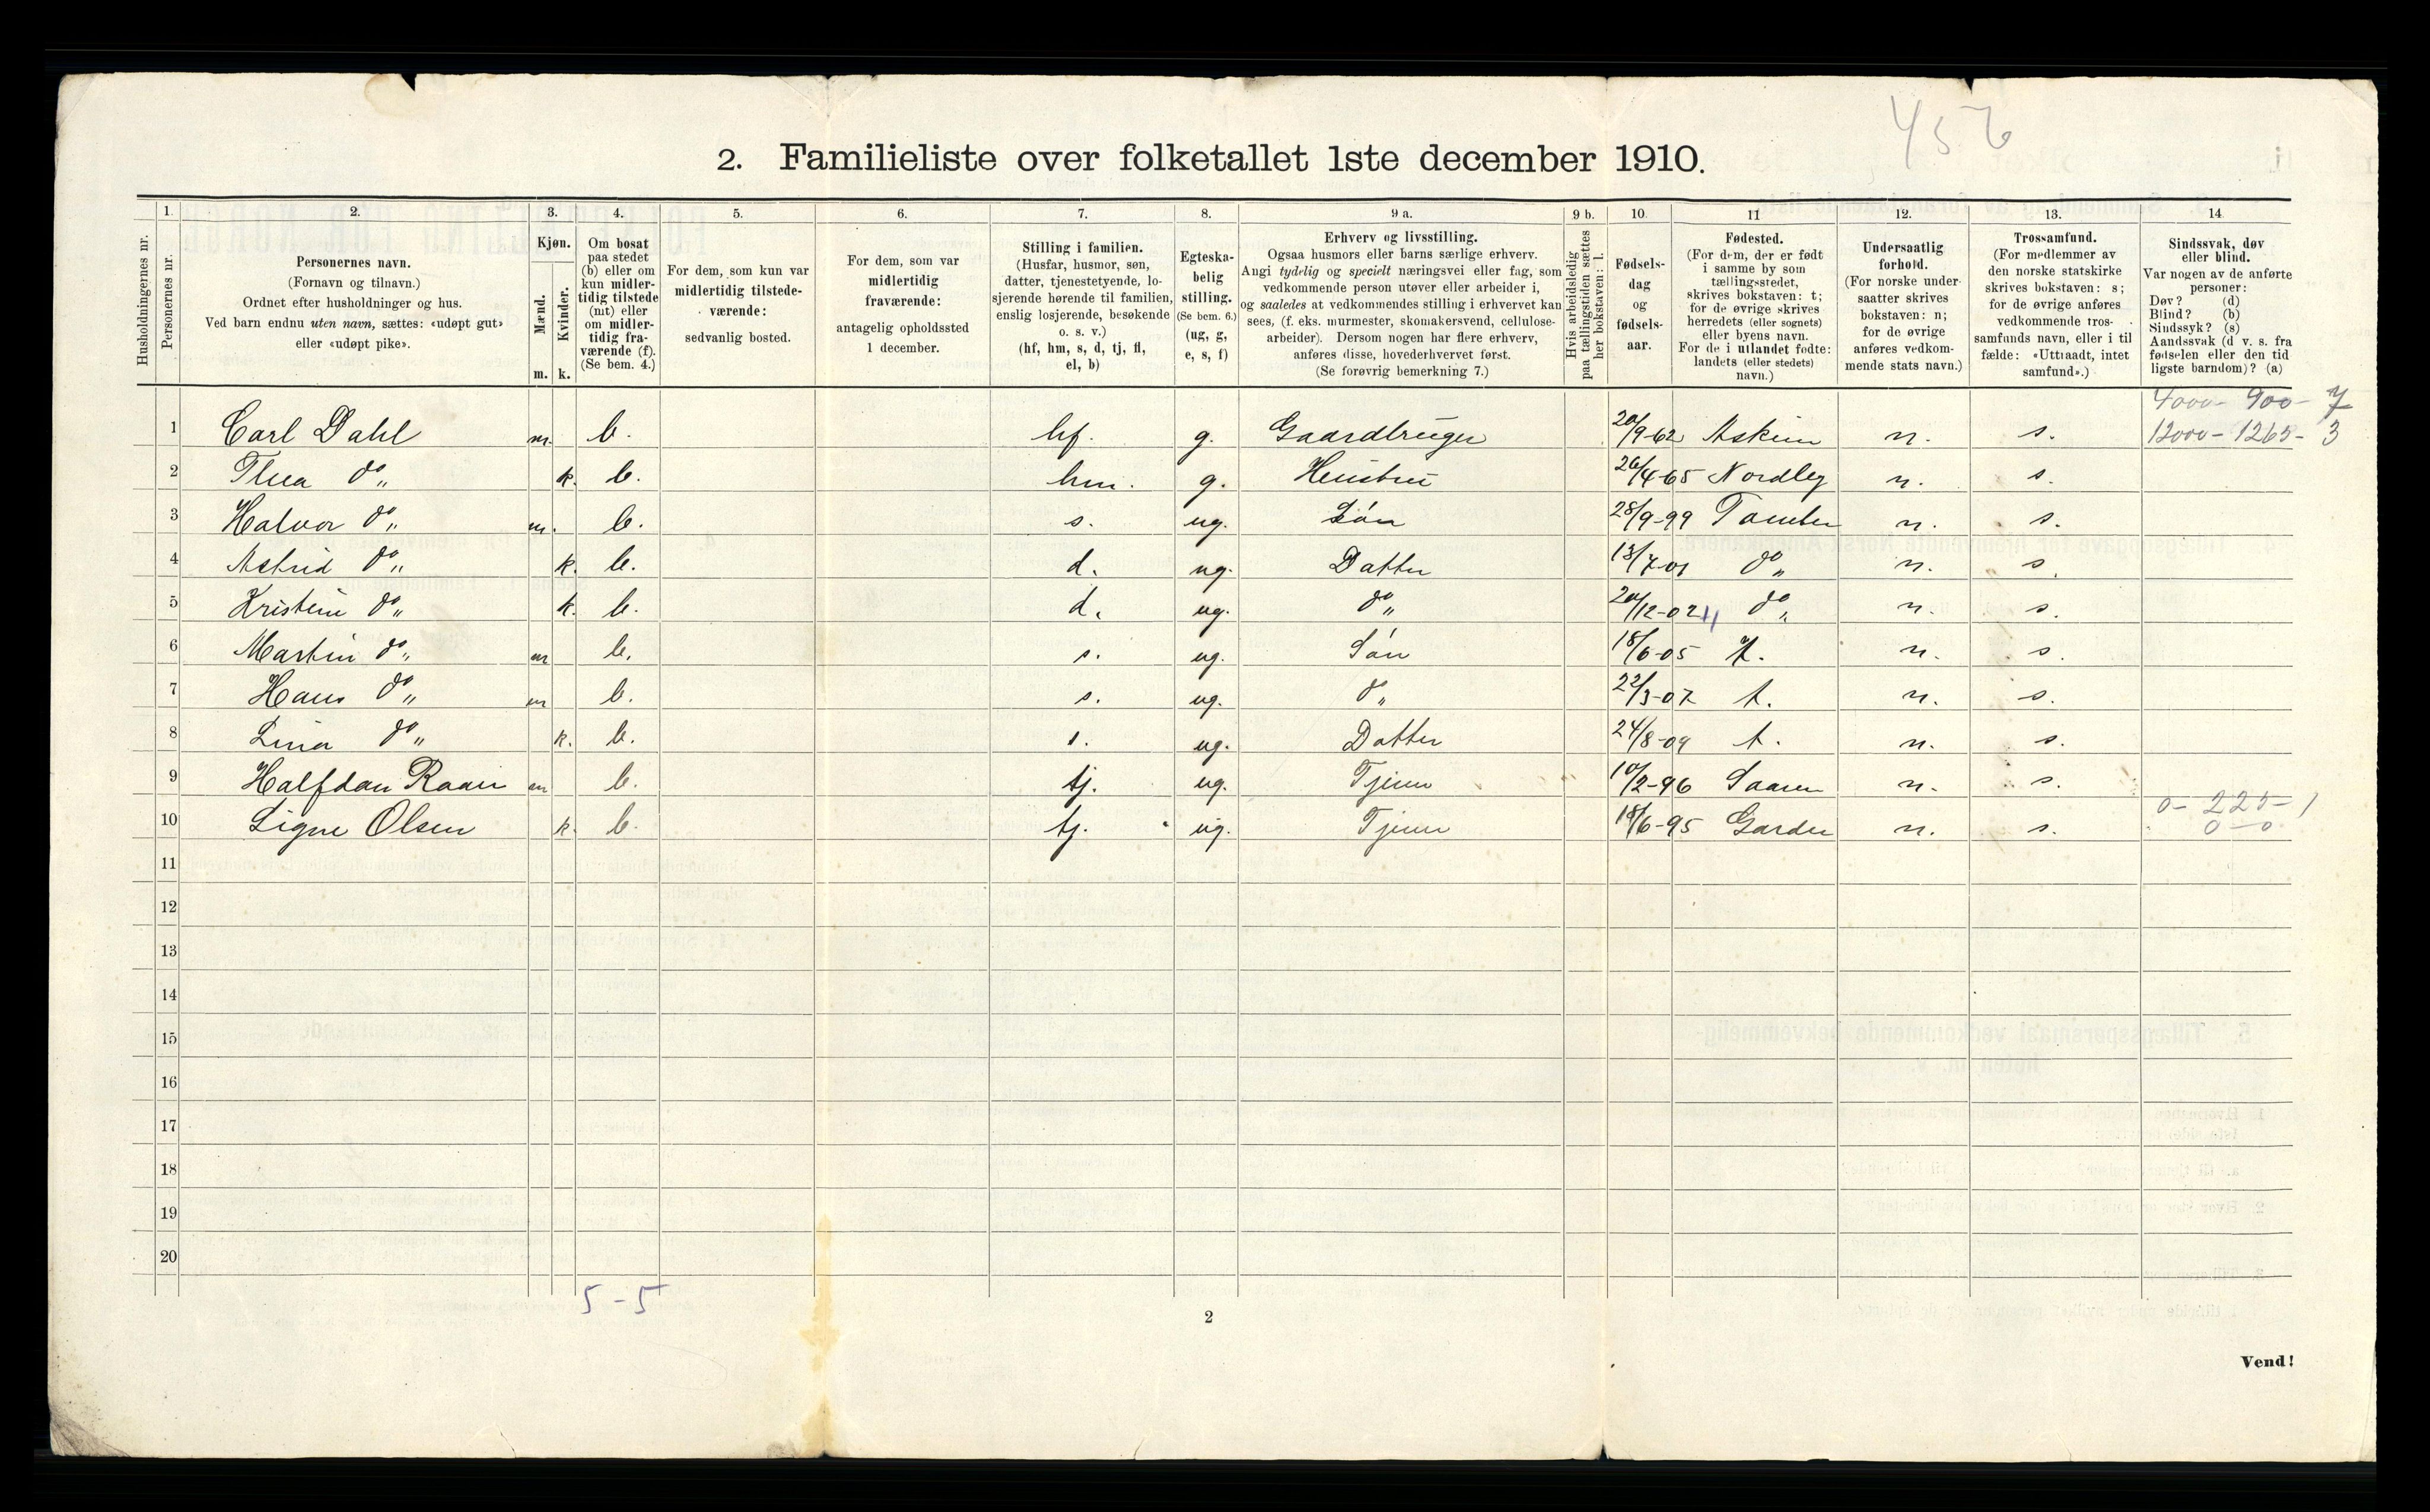 456
2. Familieliste over folketallet 1ste december 1910.
1. 2. 3. 4. 5. 6. 7. 8. 9 a. 9 b. 10. 11 12. 13. 14.
Husholdningernes nr.
Personernes nr.
Personernes navn.
(Fornavn og tilnavn.)
Ordnet efter husholdninger og hus.
Ved barn endnu uten navn, sættes: «udøpt gut»
eller «udøpt pike».
Kjøn.
Mænd.
Kvinder.
m. k.
Om bosat
paa stedet
(b) eller om
kun midler-
tidig tilstede
(mt) eller
om midler-
tidig fra-
værende (f).
(Se bem. 4.)
For dem, som kun var
midlertidig tilstede-
værende:
sedvanlig bosted.
For dem, som var
midlertidig
fraværende:
antagelig opholdssted
1 december.
Stilling i familien.
(Husfar, husmor, søn,
datter, tjenestetyende, lo-
sjerende hørende til familien,
enslig losjerende, besøkende
o. s. v.)
(hf, hm, s, d, tj, fl,
el, b)
Egteska-
belig
stilling.
(Se bem. 6.)
(ug, g,
e, s, f)
Erhverv og livsstilling.
Ogsaa husmors eller barns særlige erhverv.
Angi tydelig og specielt næringsvei eller fag, som
vedkommende person utøver eller arbeider i,
og saaledes at vedkommendes stilling i erhvervet kan
sees, (f. eks. murmester, skomakersvend, cellulose-
arbeider). Dersom nogen har flere erhverv,
anføres disse, hovederhvervet først.
(Se forøvrig bemerkning 7.)
Hvis arbeidsledig
paa tællingstiden sættes
her bokstaven: l.
Fødsels-
dag
og
fødsels-
aar.
Fødested.
(For dem, der er født
i samme by som
tællingsstedet,
skrives bokstaven: t;
for de øvrige skrives
herredets (eller sognets)
eller byens navn.
For de i utlandet fødte:
landets (eller stedets)
navn.)
Undersaatlig
forhold.
(For norske under-
saatter skrives
bokstaven: n;
for de øvrige
anføres vedkom-
mende stats navn.)
Trossamfund.
(For medlemmer av
den norske statskirke
skrives bokstaven: s;
for de øvrige anføres
vedkommende tros-
samfunds navn, eller i til
fælde: «Uttraadt, intet
samfund».)
Sindssvak, døv
eller blind.
Var nogen av de anførte
personer:
Døv? (d)
Blind? (b)
Sindssyk? (s)
Aandssvak (d v. s. fra
fødselen eller den tid
ligste barndom)? (a)
4000- 900- 7
1 Carl Dahl m. b. hf. g. Gaardbruger 20/9-62 Askim n. s. 12000- 1265- 3
2 Thea do „ k. b. hm. g. Hustru 26/4-65 Nordby n. s.
3 Halvor do „ m. b. s. ug. Søn 28/9-99 n. s.
4 Astrid do „ k. b. d. ug. Datter 13/7-01 do „ n. s.
5 Kristine do „ k. b. d. ug. do „ 20/12-02 do „ n. s.
6 Martin do „ m b. s. ug. Søn 18/6-05 t. n. s.
7 Hans do „ m b. s. ug. do „ 22/3-07 t. n. s.
8 Lina do „ k. b. s. ug. Datter 24/8-09 t. n. s.
9 Halfdan Raaen m b. tj. ug. Tjener 10/2-96 n. s.
0- 225- 1
10 Signe Olsen k. b. tj. ug. Tjener 18/6-95 Garder n. s. 0-0
11
12
13
14
15
16
17
18
19
20
5-5
2
Vend!